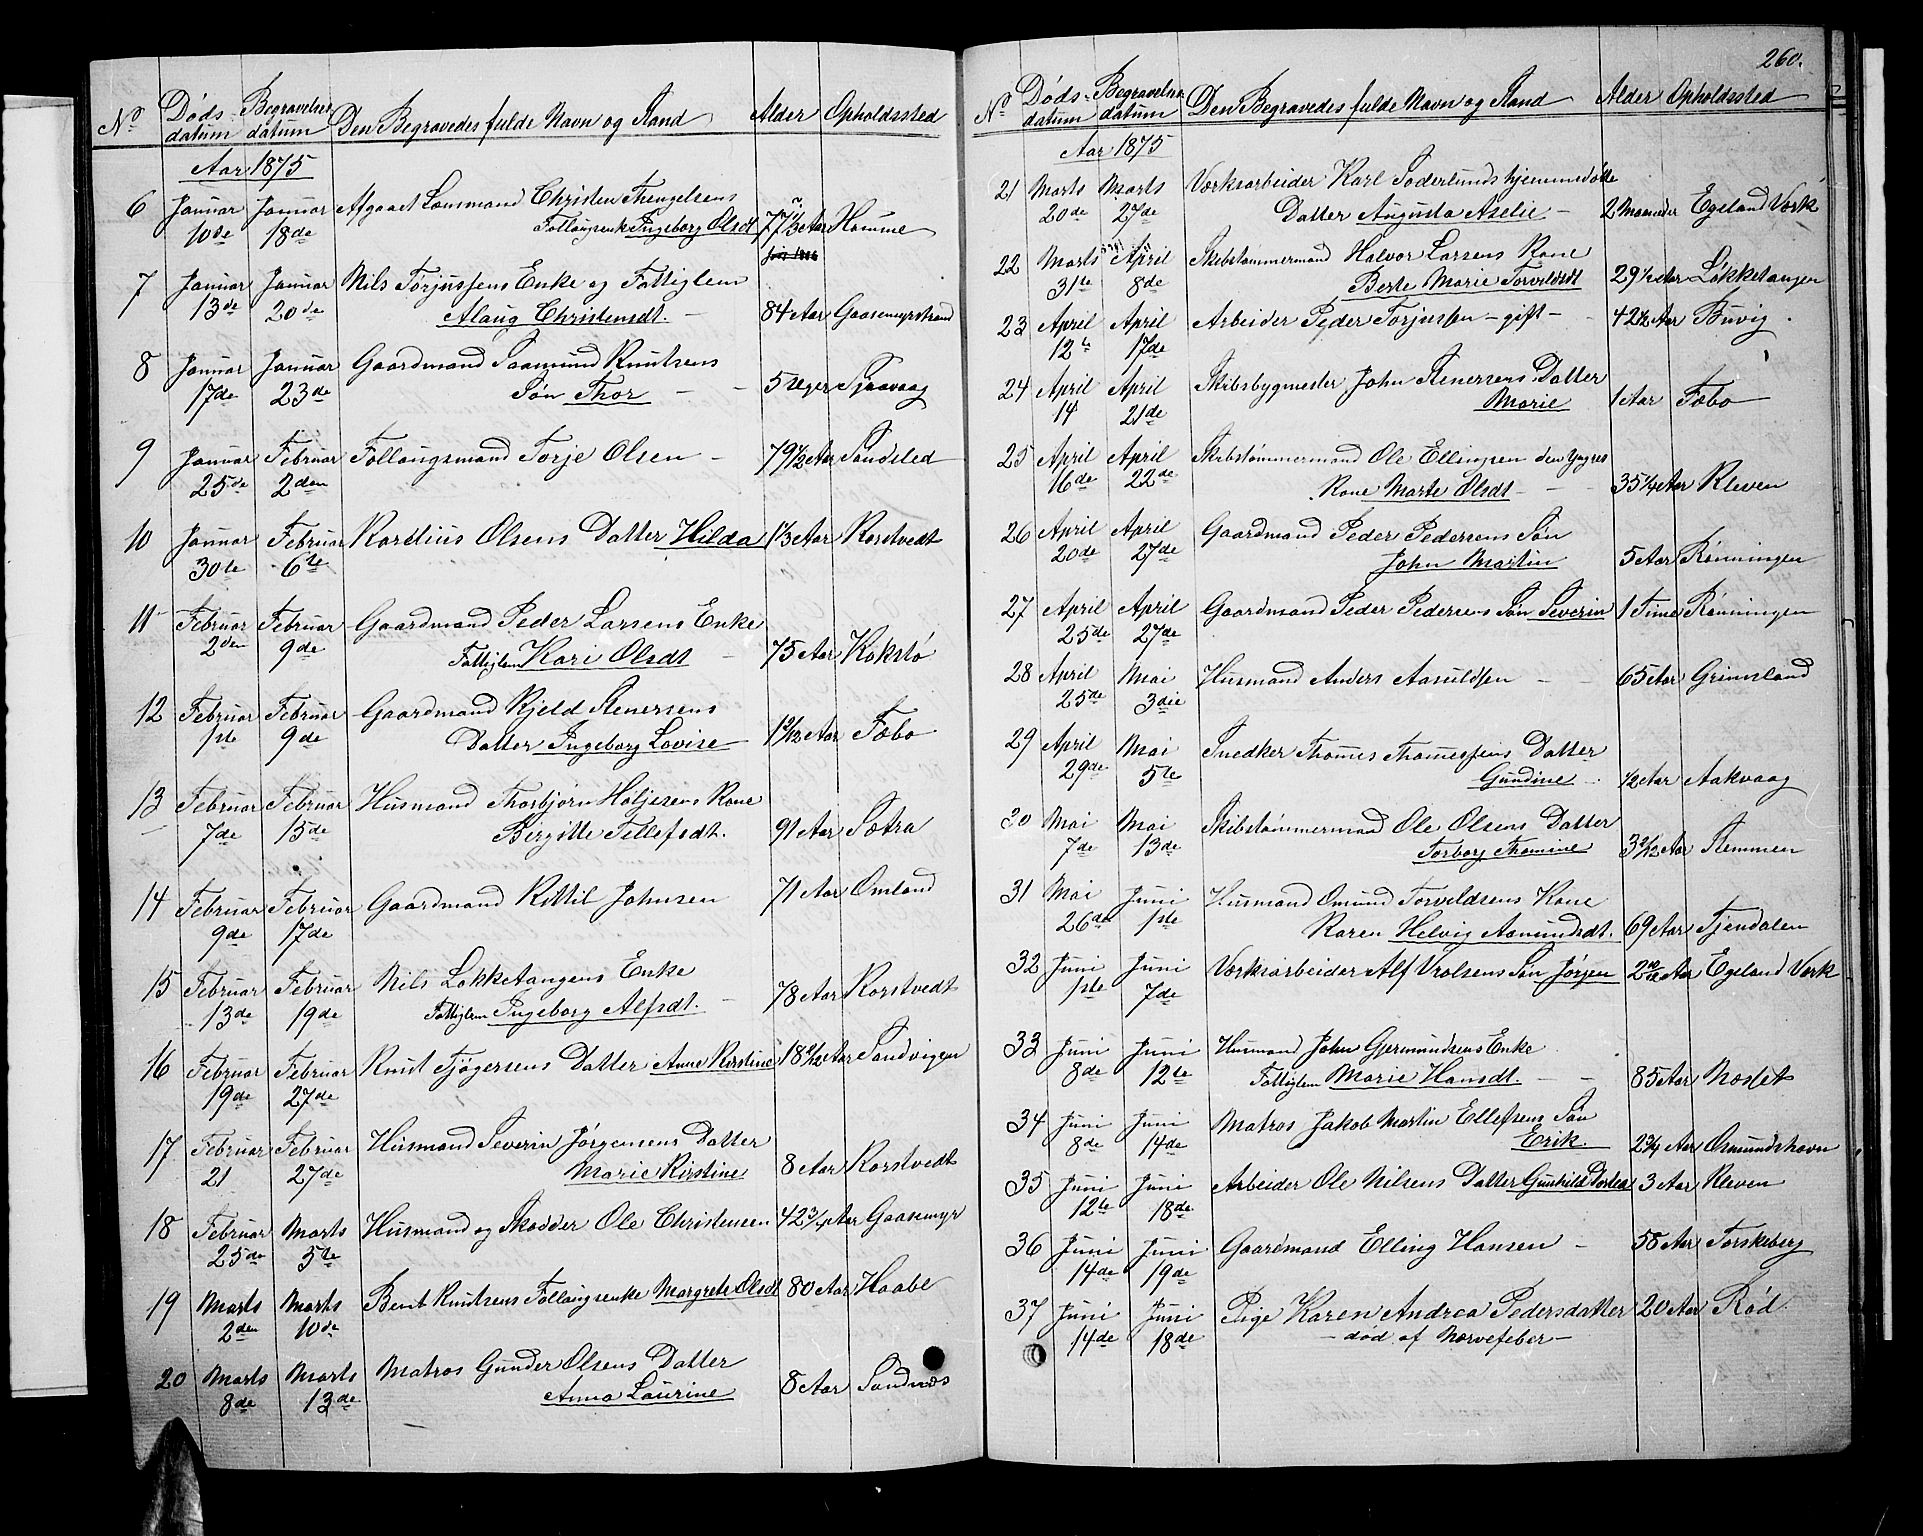 260.
No Döds- datum Begravelses datum Den Begravedes fulde Navn og Stand Alder Opholdssted
Aar 1875
6 Januar Januar Afgaaet Lensmand Christen Thengelsens
10de 18de Follaugsenke Ingeborg Olsdt 77 Aar Homme
7 Januar Januar Nils Torjussens Enke og Fattiglem
13de 20de Alaug Christensdt. 84 Aar Gaasemyrstrand
8 Januar Januar Gaardmand Saamund Knutsens
17de 23de Søn Thor 5 Uger Sjaavaag
9 Januar Februar Follaugsmand Torje Olsen 79½ Aar Sandsted
25de 2den
10 Januar Februar Kordius Olsens Datter Hilda 1⅓ Aar Korstvedt
30te 6te
11 Februar Februar Gaardmand Peder Larsens Enke
2den 9de Fattiglem Kari Olsdt 75 Aar Kokstø
12 Februar Februar Gaardmand Kjeld Stenersens
1ste 9de Datter Ingeborg Lovise Aar Fæbo
13 Februar Februar Husmand Thorbjørn Høljesens Kone
7de 15de Birgitte Tellefsdt. 91 Aar Sætra
14 Februar Februar Gaardmand Kittil Johnsen 71 Aar Omland
9de 17de
15 Februar Februar Nils Løkketangens Enke
13de 19de Fattiglem Ingeborg Alfsdt. 78 Aar Korstvedt
16 Februar Februar Knut Tjøgersens Datter Anne Kirstine 18 Aar Sandvigen
19de 27de
17 Februar Februar Husmand Severin Jørgensens Datter
21 27de Marie Kirstine 8 Aar Korstvedt
18 Februar Marts Husmand og Skrædder Ole Christensen 42¾ Aar Gaasmyr
25de 5te
19 Marts Marts Bent Knutsens Follaugsenke Margrete Olsdt 80 Aar Haabe
2den 10de
20 Marts Marts Matros Gunder Olsens Datter
8de 13de Anna Laurine 8 Aar Sandnæs
No Döds- datum Begravelses datum Den Begravedes fulde Navn og Stand Alder Opholdssted
Aar 1875
21 Marts Marts Værksarbeider Karl Søderlunds hjemmedøbte
20de 27de Datter Augusta Aselie 2 Maaneder Egeland Værk
22 Marts April Skibstømmermand Halvor Larsens Kone
31te 8de Berte Marie Torvildsdt 29½ Aar Løkketangen
23 April April Arbeider Peder Torjussen - gift - 42½ Aar Buvig.
12te 17de
24 April April Skibsbygmester John Stenersens Datter
14 21de Marie 1 Aar Fæbo
25 April April Skibstømmermand Ole Ellingsen den Yngres
16de 22de Kone Marte Olsdt 35¼ Aar Kleven
26 April April Gaardmand Peder Pedersens Søn
20de 27de John Martin 5 Aar Rønningen
27 April April Gaardmand Peder Pedersens Søn Severin 1 Time Rønningen
25de 27de
28 April Mai Husmand Anders Aasuldsen 65 Aar Grimsland
25de 3die
29 April Mai Snedker Thomes Thomessens Datter
29de 5te Gundine ½ Aar Aakvaag
30 Mai Mai Skibstømmermand Ole Olsens Datter
7de 13de Torborg Thomine 3 Aar Stemmen
31 Mai Juni Husmand Omund Torvildsens Kone
26de 1ste Karen Helvig Aamundsdt. 69 Aar Tjendalen
32 Juni Juni Værksarbeider Alf Vrolsens Søn Jørgen 2 10/12 Aar Egeland Værk
1ste 7de
33 Juni Juni Husmand John Gjermundsens Enke
8de 12te Fattiglem Marie Hansdt. 85 Aar Næslet
34 Juni Juni Matros Jakob Martin Ellefsens Søn
8de 14de Erik. 2¾ Aar Osmundshavn
35 Juni Juni Arbeider Ole Nilsens Datter Gunhild 3 Aar Kleven
12te 18de
36 Juni Juni Gaardmand Elling Hansen 58 Aar Torskeberg
14de 19de
37 Juni Juni Pige Karen Andrea Pedersdatter 20 Aar Rød.
14de 18de - død af Nervefeber -